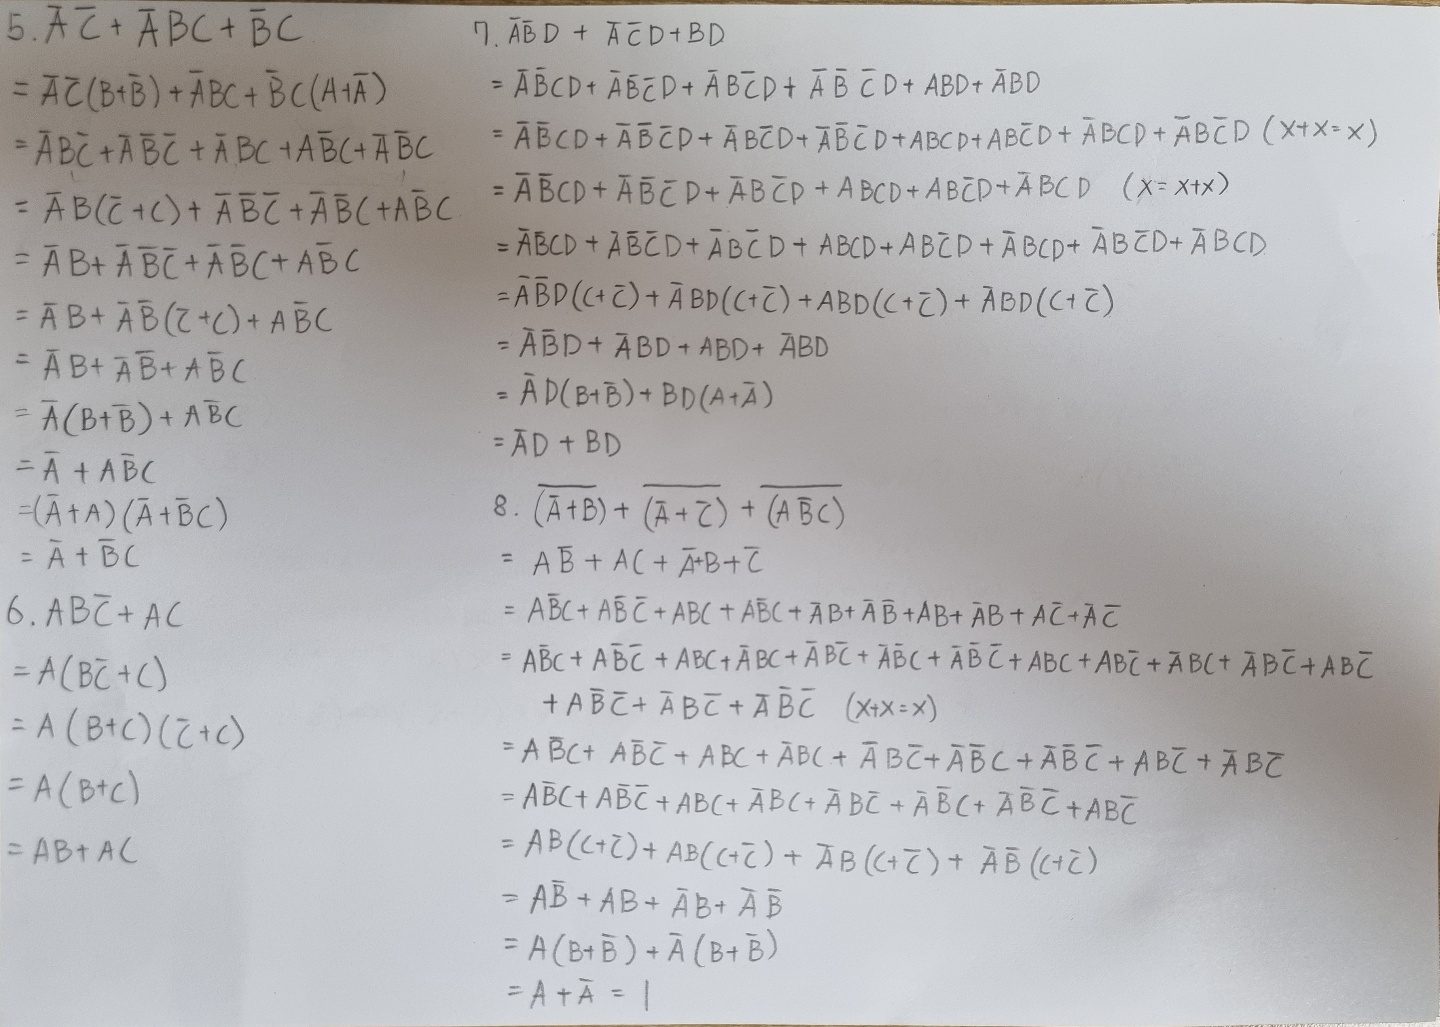 5. A̅ C̅ + A̅ B C + B̅ C
= A̅ C̅ (B + B̅) + A̅ B C + B̅ C (A + A̅)
= A̅ B C̅ + A̅ B̅ C̅ + A̅ B C + A B̅ C + A̅ B̅ C
= A̅ B (C̅ + C) + A̅ B̅ C̅ + A̅ B̅ C + A B̅ C
= A̅ B + A̅ B̅ C̅ + A̅ B̅ C + A B̅ C
= A̅ B + A̅ B̅ (C̅ + C) + A B̅ C
= A̅ B + A̅ B̅ + A B̅ C
= A̅ (B + B̅) + A B̅ C
= A̅ + A B̅ C
= (A̅ + A) (A̅ + B̅ C)
= A̅ + B̅ C
6. A B C̅ + A C
= A (B C̅ + C)
= A (B + C) (C̅ + C)
= A (B + C)
= A B + A C
7. A̅ B̅ D + A̅ C̅ D + B D
= A̅ B̅ C D + A̅ B̅ C̅ D + A̅ B C̅ D + A̅ B̅ C̅ D + A B D + A̅ B D
= A̅ B̅ C D + A̅ B̅ C̅ D + A̅ B C̅ D + A̅ B̅ C̅ D + A B C D + A B C̅ D + A̅ B C D + A̅ B C̅ D (x + x = x)
= A̅ B̅ C D + A̅ B̅ C̅ D + A̅ B C̅ D + A B C D + A B C̅ D + A̅ B C D (x = x + x)
= A̅ B̅ C D + A̅ B̅ C̅ D + A̅ B C̅ D + A B C D + A B C̅ D + A̅ B C D + A̅ B C̅ D + A̅ B C D
= A̅ B̅ D (C + C̅) + A̅ B D (C + C̅) + A B D (C + C̅) + A̅ B D (C + C̅)
= A̅ B̅ D + A̅ B D + A B D + A̅ B D
= A̅ D (B + B̅) + B D (A + A̅)
= A̅ D + B D
8. \overline{(A̅ + B)} + \overline{(A̅ + C̅)} + \overline{(A B̅ C)}
= A B̅ + A C + A̅ + B + C̅
= A B̅ C + A B̅ C̅ + A B C + A B̅ C + A̅ B + A̅ B̅ + A B + A̅ B + A C̅ + A̅ C̅
= A B̅ C + A B̅ C̅ + A B C + A̅ B C + A̅ B C̅ + A̅ B̅ C + A̅ B̅ C̅ + A B C + A B C̅ + A̅ B C + A̅ B C̅ + A B C̅
+ A B̅ C̅ + A̅ B C̅ + A̅ B̅ C̅ (x + x = x)
= A B̅ C + A B̅ C̅ + A B C + A̅ B C + A̅ B C̅ + A̅ B̅ C + A̅ B̅ C̅ + A B C̅ + A̅ B C̅
= A B̅ C + A B̅ C̅ + A B C + A̅ B C + A̅ B C̅ + A̅ B̅ C + A̅ B̅ C̅ + A B C̅
= A B (C + C̅) + A B (C + C̅) + A̅ B (C + C̅) + A̅ B̅ (C + C̅)
= A B̅ + A B + A̅ B + A̅ B̅
= A (B + B̅) + A̅ (B + B̅)
= A + A̅ = 1